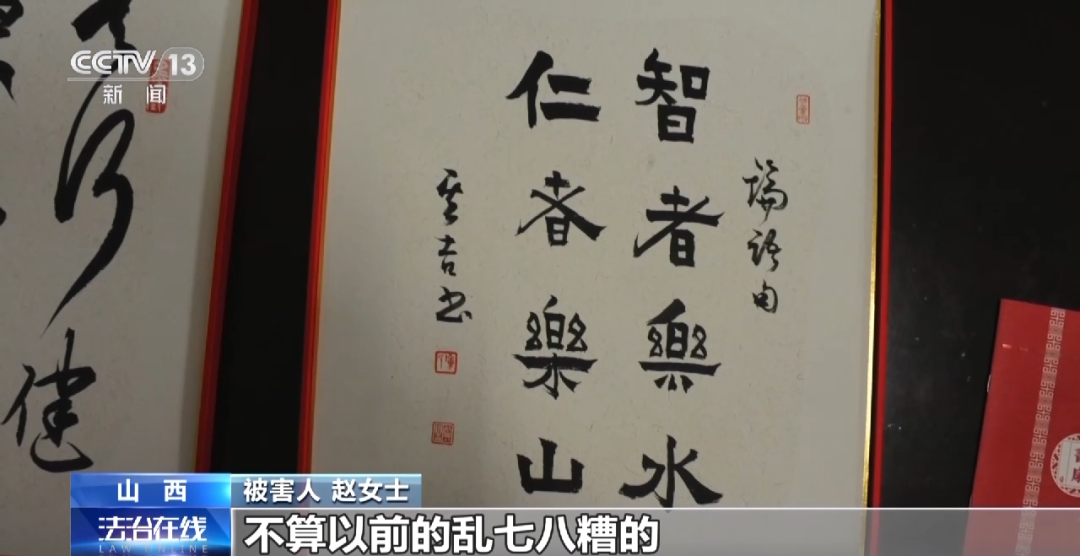 CCTV 13
新闻
健
論語句
智者樂水
仁者樂山
山西
法治在线
LAW ONLINE
被害人 赵女士
不算以前的乱七八糟的